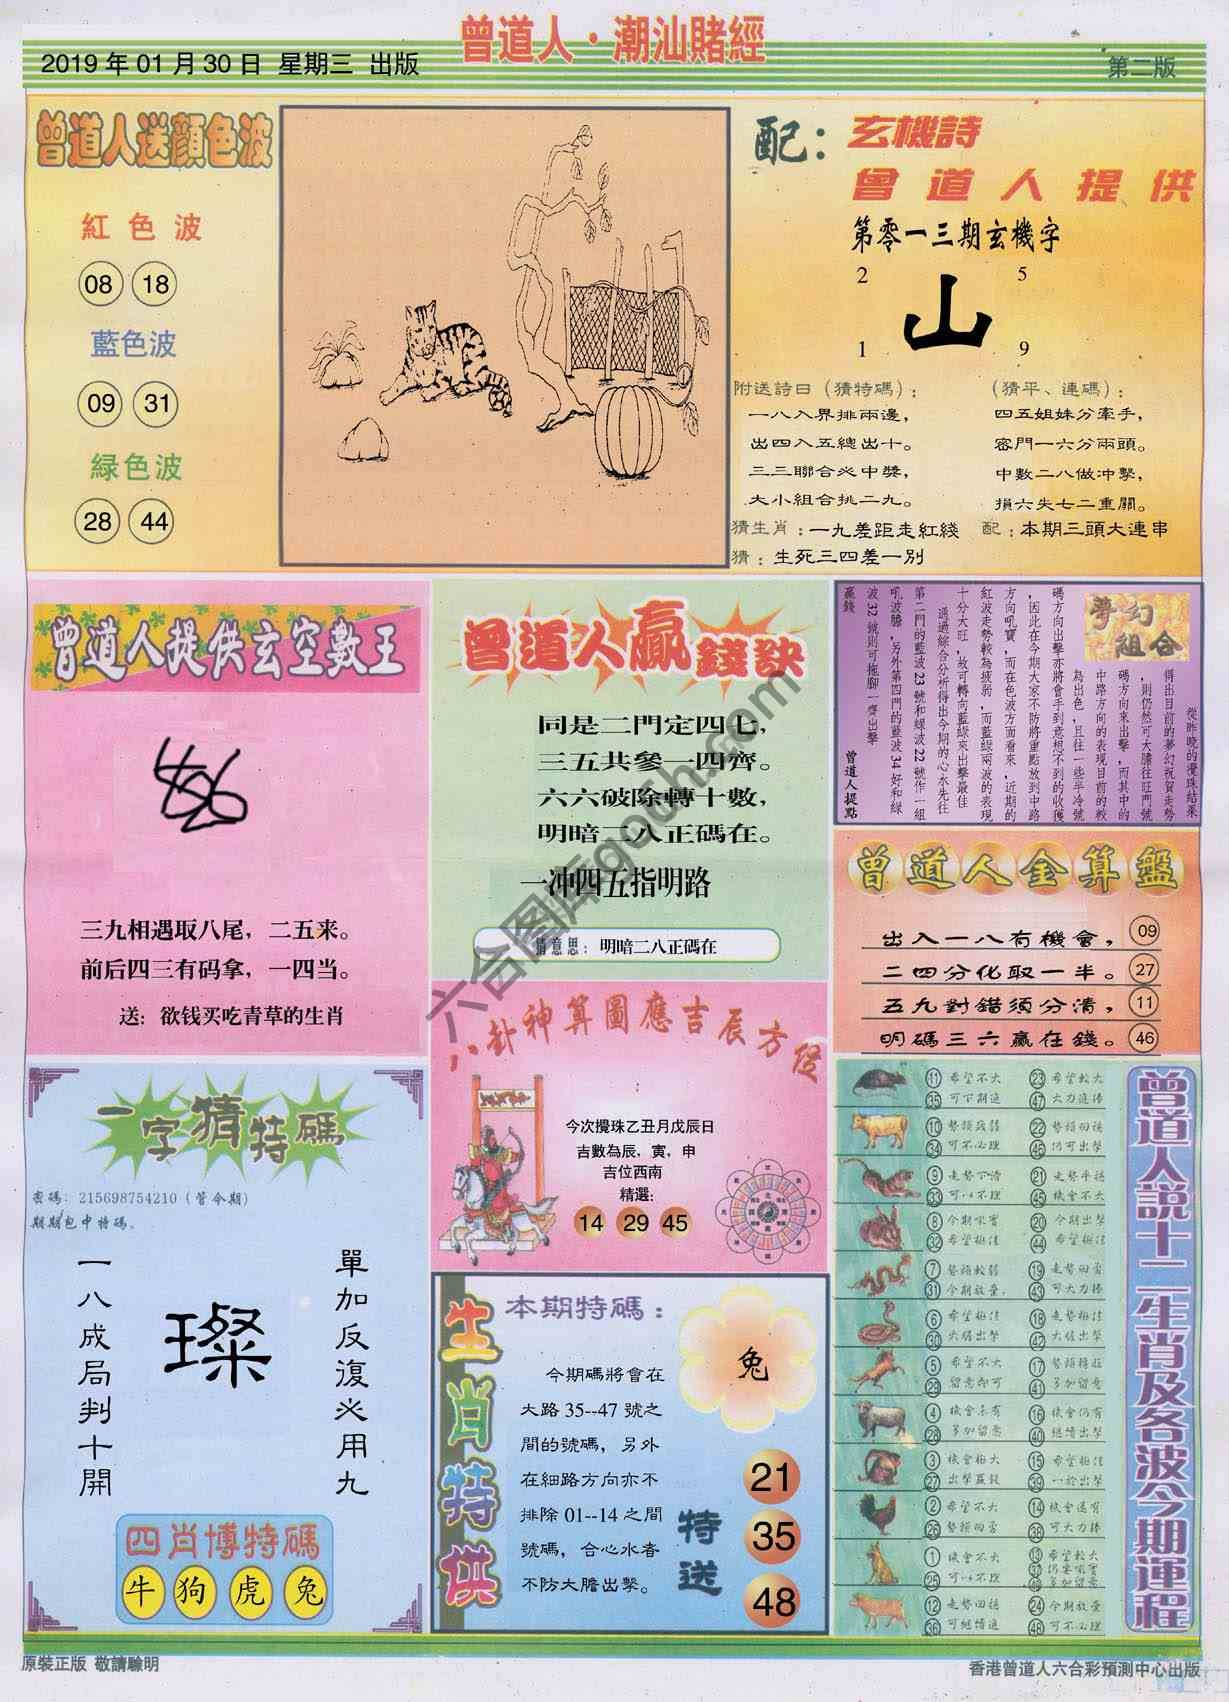 曾道人·潮汕賭經
2019年01月30日 星期三 出版
第二版
曾道人送顏色波
紅色波
08 18
藍色波
09 31
緑色波
28 44
配：
玄機詩
曾道人提供
第零一三期玄機字
2 5
山
1 9
附送詩曰（猜特碼）：
一八入界排兩邊，
出四入五總出十。
三三聯合必中獎，
大小組合挑二九。
（猜平、連碼）：
四五姐妹分牽手，
密門一六分兩頭。
中數二八做沖擊，
損六失七二重關。
猜生肖：一九差距走紅綫
配：本期三頭大連串
猜：生死三四差一别
曾道人提供玄空數王
三九相遇取八尾，二五来。
前后四三有码拿，一四当。
送：欲钱买吃青草的生肖
曾道人贏錢訣
同是二門定四七，
三五共參一四齊。
六六破除轉十數，
明暗二八正碼在。
一冲四五指明路
猜意思：明暗二八正碼在
夢幻組合
從昨晚的攪珠結果
得出目前的夢幻祝賀走勢
，則仍然可大膽往旺門號
碼方向來出擊，而其中的
中路方向的表現目前的較
為出色，且往一些半冷號
碼方向出擊亦將會手到意想不到的收獲
，因此在今期大家不防將重點放到中路
方向吼寶，而在色波方面看來，近期的
紅波走勢較為疲弱，而藍綠兩波的表現
十分大旺，故可轉向藍綠來出擊最佳
通過綜合分析得出今期的心水先往
第二門的藍波23號和綠波22號作一組
吼波膽，另外第四門的藍波34好和綠
波32號則可拖腳一齊出擊
贏錢
曾道人提點
曾道人金算盤
出入一八有機會，09
二四分化取一半。27
五九對錯須分清，11
明碼三六贏在錢。46
八卦神算圖應吉辰方位
今次攪珠乙丑月戊辰日
吉數為辰，寅，申
吉位西南
精選：
14 29 45
一字猜特碼
密碼：215698754210（管令期）
期期包中特碼。
單加反復必用九
璨
一八成局判十開
四肖博特碼
牛 狗 虎 兔
生肖特供
本期特碼：
今期碼將會在
大路35--47號之
間的號碼，另外
在細路方向亦不
排除01--14之間
號碼，合心水者
不防大膽出擊。
兔
特送
21
35
48
曾道人説十二生肖及各波今期運程
11 希望不大 23 希望較大
35 可下期進 47 大力進捧
10 勢頭疲弱 22 勢頭回穩
34 可不必理 46 仍可出擊
9 走勢下滑 21 走勢平穩
33 可以不理 45 機會不大
8 今期吼寶 20 今期出擊
32 希望極佳 44 希望極佳
7 勢頭較弱 19 走勢回勇
31 今期放量， 43 可大力捧
6 希望極佳 18 走勢極佳
30 大膽出擊 42 大膽出擊
5 希望不大 17 勢頭轉旺
29 留意即可 41 多加留意
4 機會未有 16 機會仍有
28 多加留意 40 繼續出擊
3 機會極大 15 希望極佳
27 出擊贏錢 39 一於出擊
2 希望不大 14 機會還有
26 勢頭回勇 38 可大力捧
1 機會不大 13 希望較大
25 可以不理 37 仍要吼寶
49 多加留意
12 走勢回穩 24 今期放量
36 可繼續追 48 可不必理
原裝正版 敬請驗明
香港曾道人六合彩預測中心出版
六合图库gouh.com